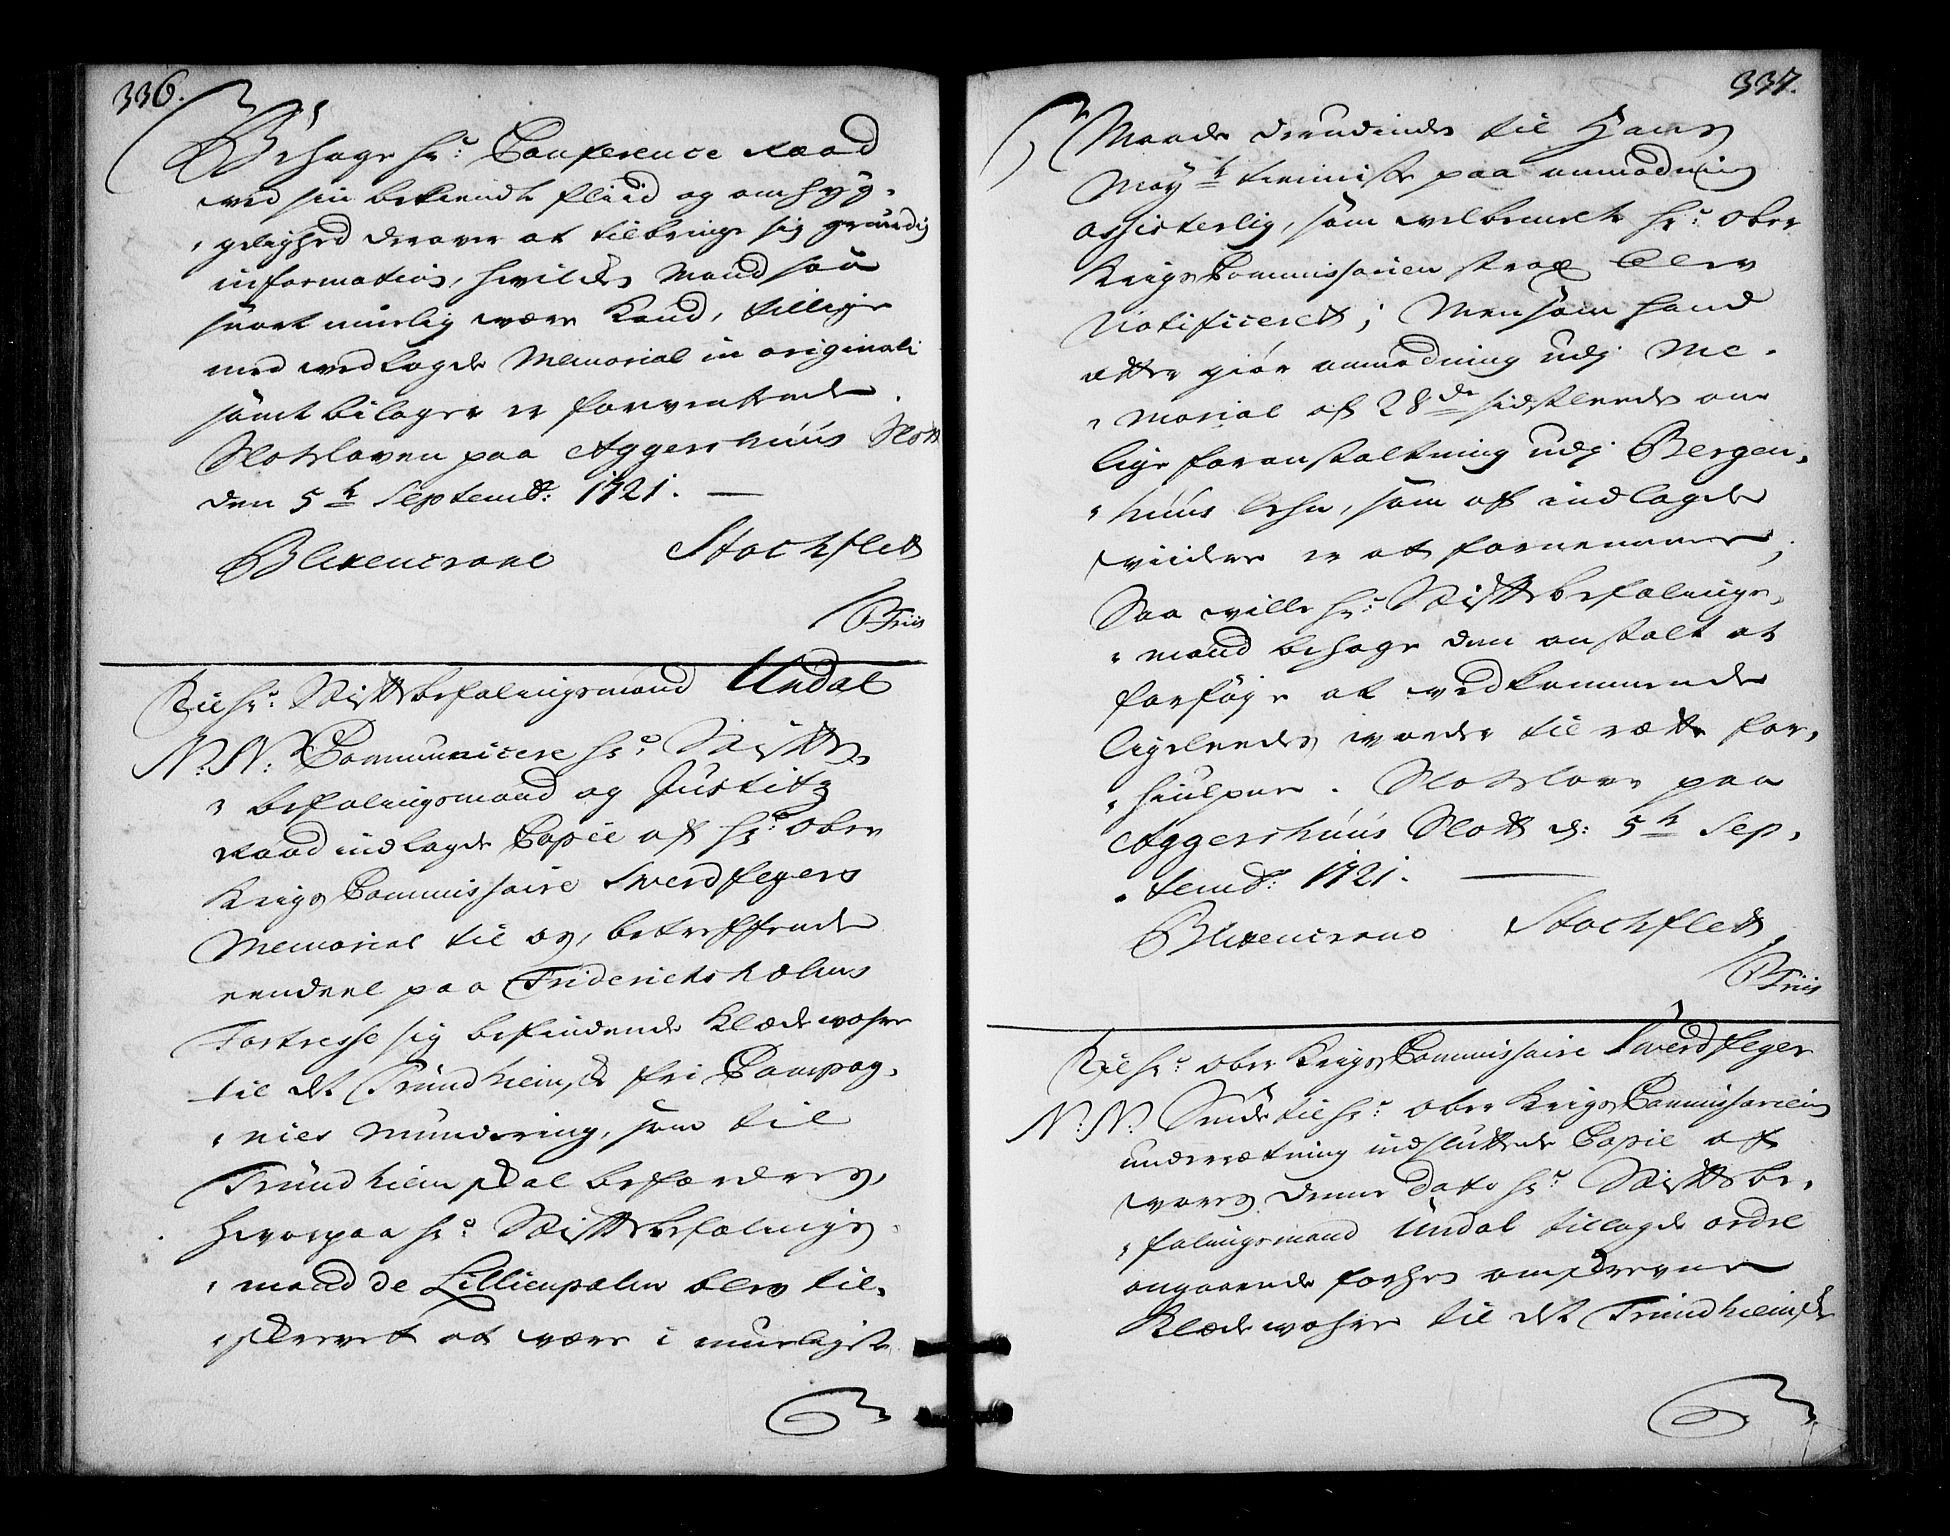 336.
Behage hr: Conference Raad
ved sin bekiendte fliid og omhyg-
gelighed derover at tilbringe sig grundig
information, hvilcket Mand saa
snart muelig være Kand, tillige
med vedlagde Memorial in originali
samt bilager er forventende
Slotsloven paa Aggershuus Slott
den 5te Septembr: 1721. —
Blixencrone Stochfleth
/ BFriis
Til hr: Stiftsbefalingsmand Undal
N: N: Communicere hr: Stifts-
befalingsmand og Justitz
Raad indlagde Copie af hr: Ober
Krigs Commissaire Swerdfegers
Memorial til os, betreffende
eendeel paa Friderichsholms
Fortresse sig befindende Klæde wahre
til det Trundhiemske fri Compag-
nies Mundering, som til
Trundhiem skal befordres,
hvorpaa hr: Stiftsbefalings-
mand de Lillienpalm blev til-
skrevet at være i mueligste
337.
Maade derudinden til Hans
Maytz tienniste paa anmodning
assisterlig, som welbemelte hr: Ober
Krigs Commissarien strax blev
Notificeret; Mensom hand
atter giør anmodning udj Me-
morial af 28de sidstleeden om
lige foranstaltning udj Bergen-
huus Lehn, som af indlagde
viidere er at fornemme;
Saa wille hr: Stiftsbefalings-
mand behage den anstalt at
forføje at vedkommende
ligeleedes worder til rætte for-
hiulpne. Slotslove paa
Aggershuus Slott d: 5te Sep-
tembr: 1721. —
Blixencrone Stochfleth
/ BFriis
Til hr: Ober Krigs Commissaire Swerdfeger
N: N: Sende til hr: Ober Krigs Commissariens
underrætning indsluttende Copie af
vores denne Dato hr: Stiftsbe-
falingsmand Undal tillagde ordre
angaaende forhen omskrevne
Klæde wahre til det Trundhiemske